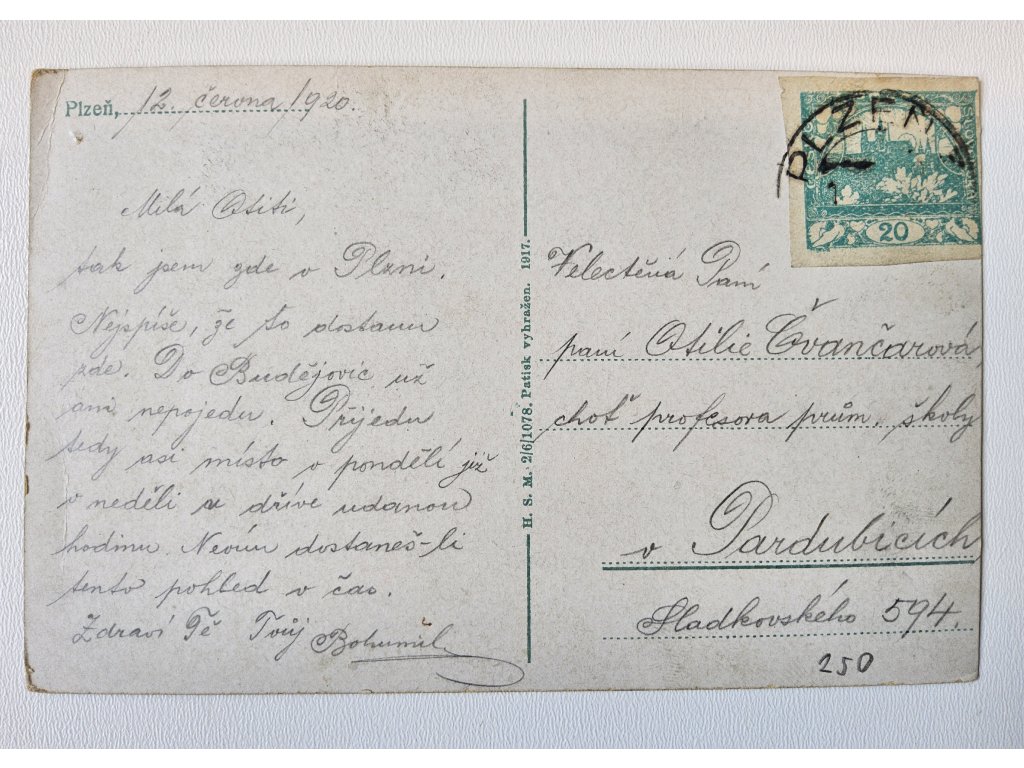 Plzeň, 12. června 1920.
Milá Otiti,
tak jsem zde v Plzni.
Nejspíše, že to dostanu
zde. Do Budějovic už
ani nepojedu. Přijedu
tedy asi místo v pondělí již
v neděli v dříve udanou
hodinu. Nevím dostaneš-li
tento pohled v čas.
Zdraví Tě Tvůj Bohumil
H. S. M. 2/6/1078. Patisk vyhražen. 1917.
PLZEŇ
20
Velectěná Paní
paní Otilie Čvančarová,
choť profesora prům. školy
v Pardubicích
Sladkovského 594.
250